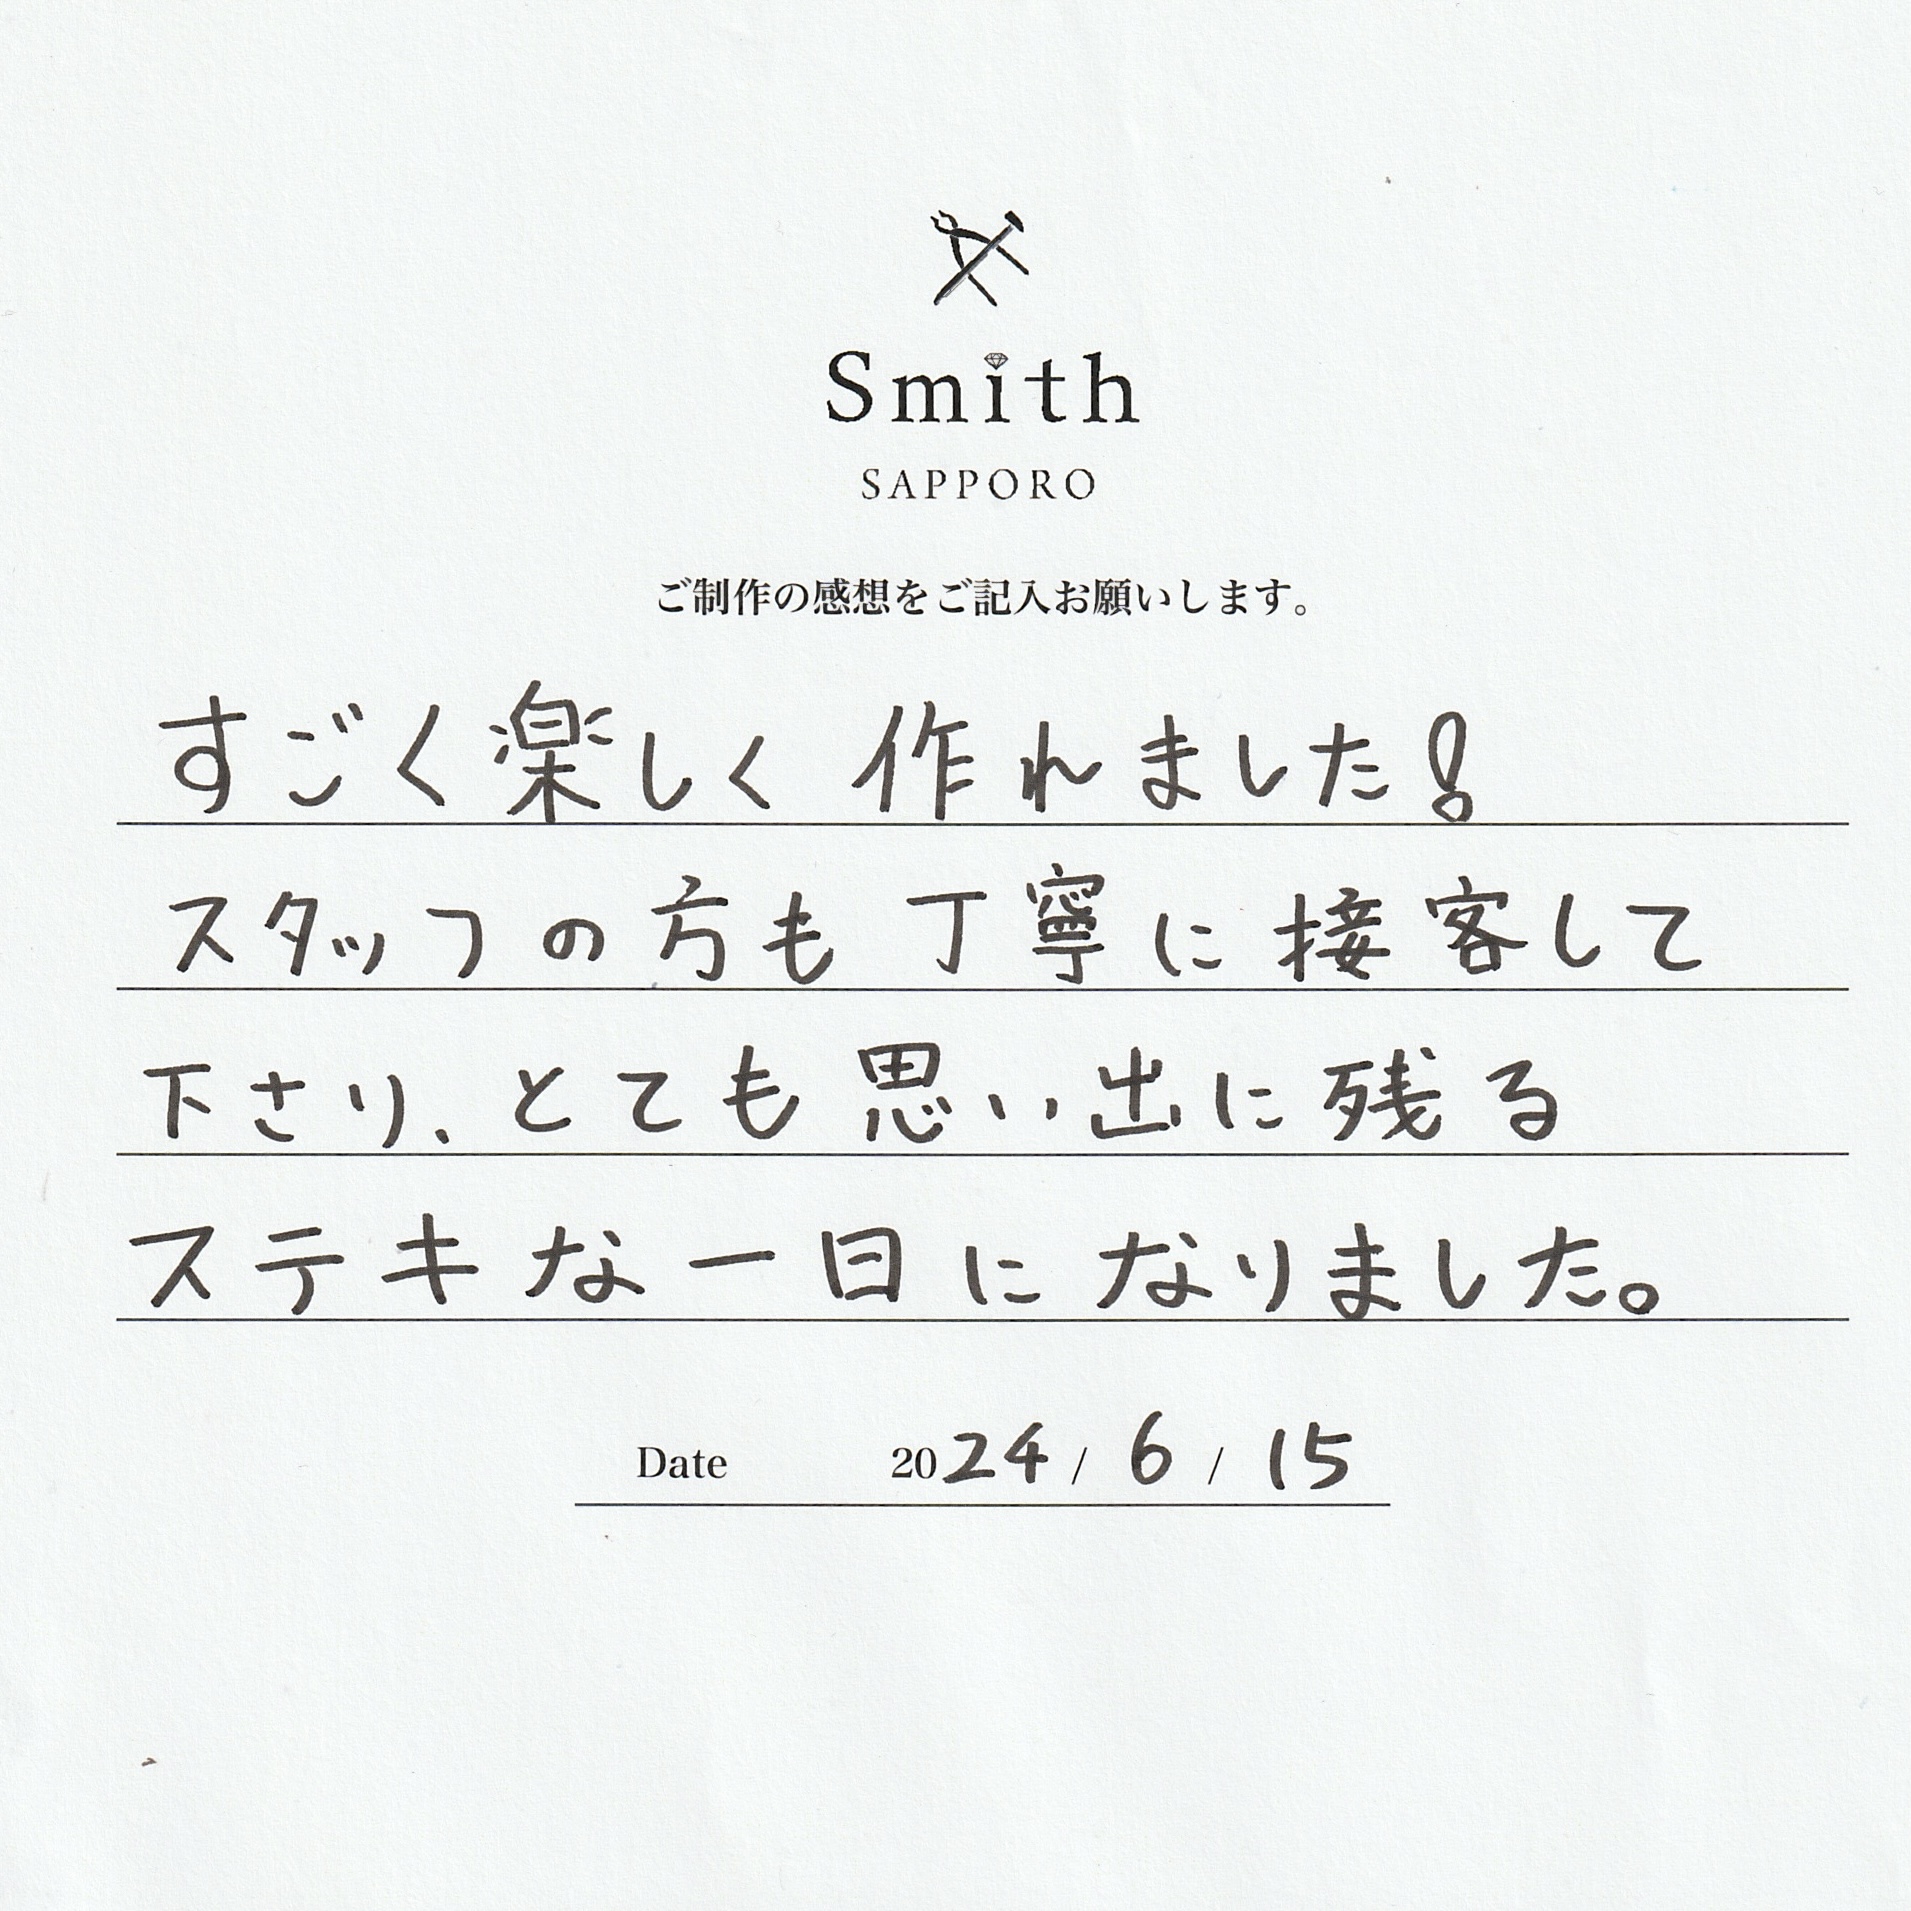 Smith
SAPPORO
ご制作の感想をご記入お願いします。
すごく楽しく作れました!
スタッフの方も丁寧に接客して
下さり、とても思い出に残る
ステキな一日になりました。
Date 2024 / 6 / 15